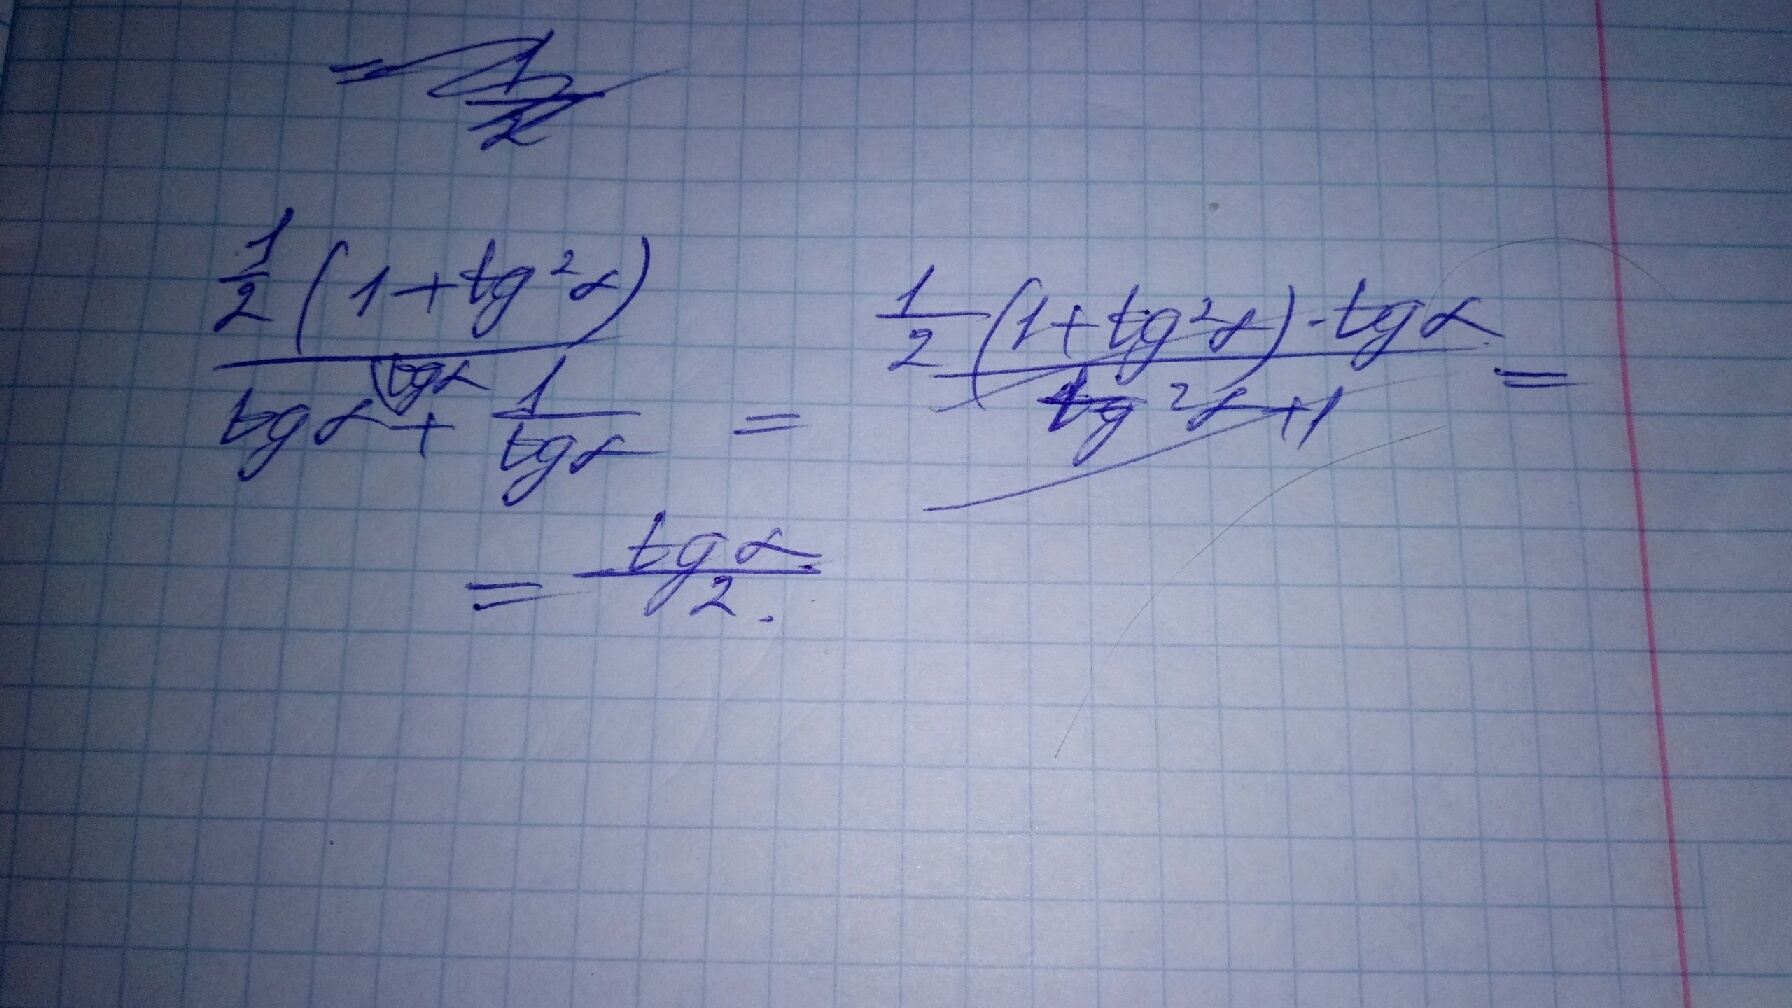 = 1/2
1/2 (1 + tg²α) / (tgα + 1/tgα) = 1/2 (1 + tg²α) · tgα / (tg²α + 1) =
= tgα / 2.